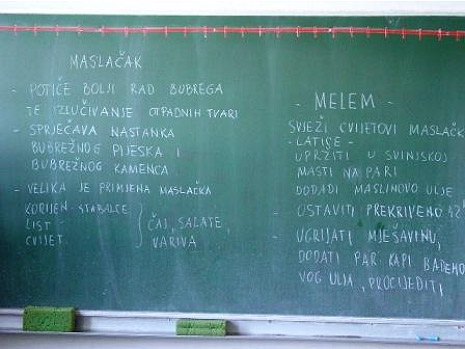 MASLAČAK
- POTIČE BOLJI RAD BUBREGA
TE IZLUČIVANJE OTPADNIH TVARI
- SPRJEČAVA NASTANKA
BUBREŽNOG PIJESKA I
BUBREŽNOG KAMENCA
- VELIKA JE PRIMJENA MASLAČKA
KORIJEN-STABALCE
LIST-
CVIJET-
ČAJ, SALATE,
VARIVA
- MELEM -
SVJEŽI CVIJETOVI MASLAČK
- LATICE -
UPRŽITI U SVINJSKOJ
MASTI NA PARI
DODATI MASLINOVO ULJE
- OSTAVITI PREKRIVENO 12h
- UGRIJATI MJEŠAVINU,
DODATI PAR KAPI BADEMO
VOG ULJA, PROCIJEDITI